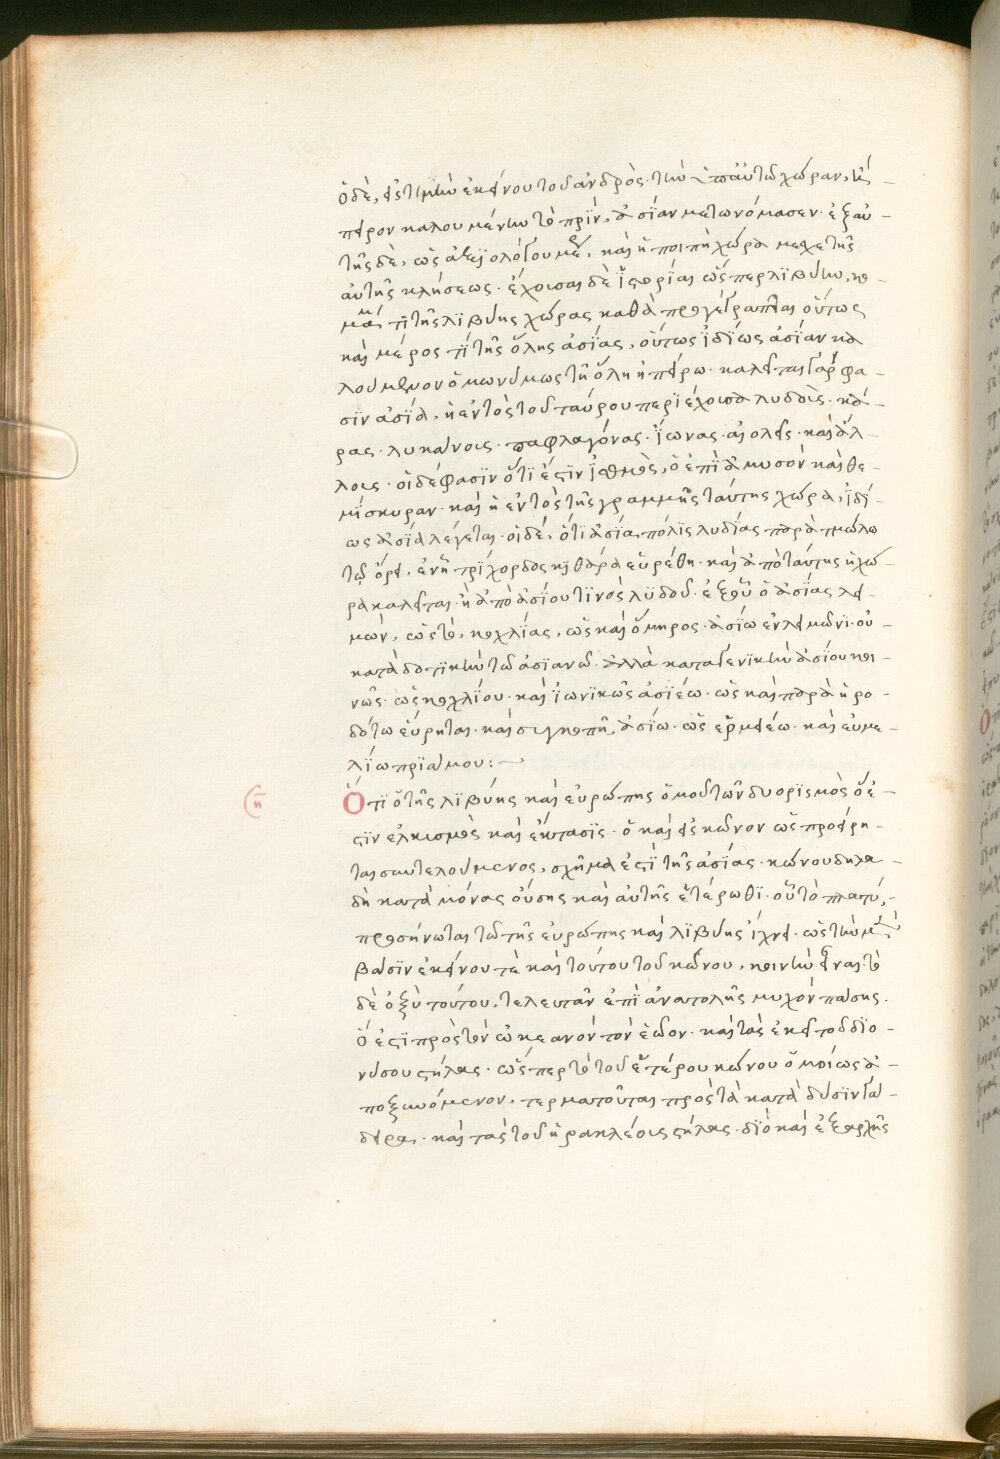 ὁ δὲ, εἰς τιμὴν ἐκείνου τοῦ ἀνδρὸς· τὴν ὑπ' αὐτῶ χώραν, ἤ-
πειρον καλουμένην τὸ πρὶν, ἀσίαν μετωνόμασεν· ἐξ αὐ-
τῆς δὲ, ὡς ἀξιολόγου μὲν, καὶ ἡ λοιπὴ χώρα μετέχει τῆς
αὐτῆς κλήσεως· ἔχουσαι δὲ ἱστορίαι ὥσπερ λιβύην, κο-
τι τῆς λιβύης χώρας καθὰ προγέγραπται οὕτως
καὶ μέρος τί τῆς ὅλης ἀσίας, οὕτως ἰδίως ἀσίαν κα
λούμενον ὁμωνύμως τῆ ὅλη ἠπείρω· καλεῖται γάρ φα-
σϊν ἀσία, ἡ ἐντὸς τοῦ ταύρου περιέχουσα λυδοὺς· κᾶ-
ρας· λυκάονας· παφλαγόνας· ἴωνας· αἰολεῖς· καὶ ἄλ-
λους· οἱ δέ φασϊν ὅτι ἐστὶν ἰσθμὸς, ὁ ἐπὶ ἀμυσὸν καὶ θε-
μίσκυραν· καὶ ἡ ἐντὸς τῆς γραμμῆς ταύτης χώρα, ἰδί-
ως ἀσία λέγεται· οἱ δέ, ὅτι ἀσία πόλις λυδίας παρὰ τμώλω
τῷ ὄρει, ἐν ᾗ τρίχορδος κιθάρα εὑρέθη· καὶ ἀπὸ ταύτης ἡ χώ-
ρα καλεῖται· ἢ ἀπὸ ἀσίου τινὸς λυδοῦ· ἐξ οὗ ὁ ἀσίας λει-
μών, ὡς τὸ, κοχλίας, ὡς καὶ ὅμηρος· ἀσίω ἐν λειμῶνι· οὐ
κατὰ δοτικὴν τῶ ἀσιανῶ· ἀλλὰ κατὰ γενικὴν ἀσίου κοι-
νῶς· ὡς κοχλίου· καὶ ἰωνικῶς ἀσιέω· ὡς καὶ παρὰ ἡρο-
δότω εὕρηται· καὶ συγκοπῆ, ἀσίω· ὡς ἑρμείέω· καὶ εὐμε-
λίω πριάμου:-
(η)
Ὅτι ὁ τῆς λιβύης καὶ εὐρώπης ὁμοῦ τῶν δυο ρισμὸς ὅ ἐ-
στιν ἑλκισμὸς καὶ ἔκτασις· ὁ καὶ εἰς κῶνον ὡς προείρη-
ται συντελούμενος, σχῆμα ἐστὶ τῆς ἀσίας· κώνου δηλα-
δὴ κατὰ κόνας οὔσης καὶ αὐτῆς ἑτέρωθι· οὗ τὸ πλατύ,-
προσήνωται τῶ τῆς εὐρώπης καὶ λιβύης ἴχνει· ὡς τὴν
βάσιν ἐκείνου τὲ καὶ τούτου τοῦ κώνου, κοινὴν εἶναι· τὸ
δὲ ὀξὺ τούτου, τελευτᾶν ἐπὶ ἀνατολῆς μυχὸν πάσης·
ὅ ἐστι πρὸς τὸν ὠκεανὸν τὸν ἐῶον· καὶ τὰς ἐκεῖ τοῦ διο-
νύσου στήλας· ὥσπερ τὸ τοῦ ἑτέρου κώνου ὁμοίως ἀ-
ποξυνόμενον, τερματοῦται πρὸς τὰ κατὰ δύσιν γά-
δειρα· καὶ τὰς τοῦ ἡρακλέους στήλας· διὸ καὶ ἐξ ἀρχῆς